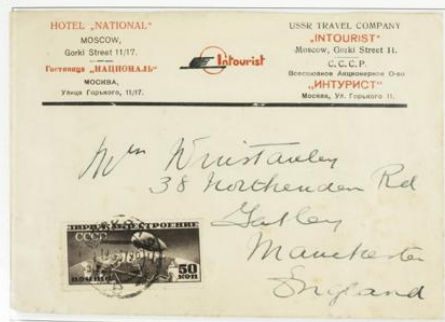 HOTEL „NATIONAL"
MOSCOW,
Gorki Street 11/17.
Гостиница „НАЦИОНАЛЬ"
МОСКВА,
Улица Горького, 11/17.
Intourist
USSR TRAVEL COMPANY
„INTOURIST"
Moscow, Gorki Street 11.
С.С.С.Р.
Всесоюзное Акционерное О-во
„ИНТУРИСТ"
Москва, Ул. Горького 11.
Winstanley
38 Northenden Rd
Gatley
Manchester
England
ДИРИЖАБЛЕСТРОЕНИЕ
СССР
ПОЧТА
50
КОП